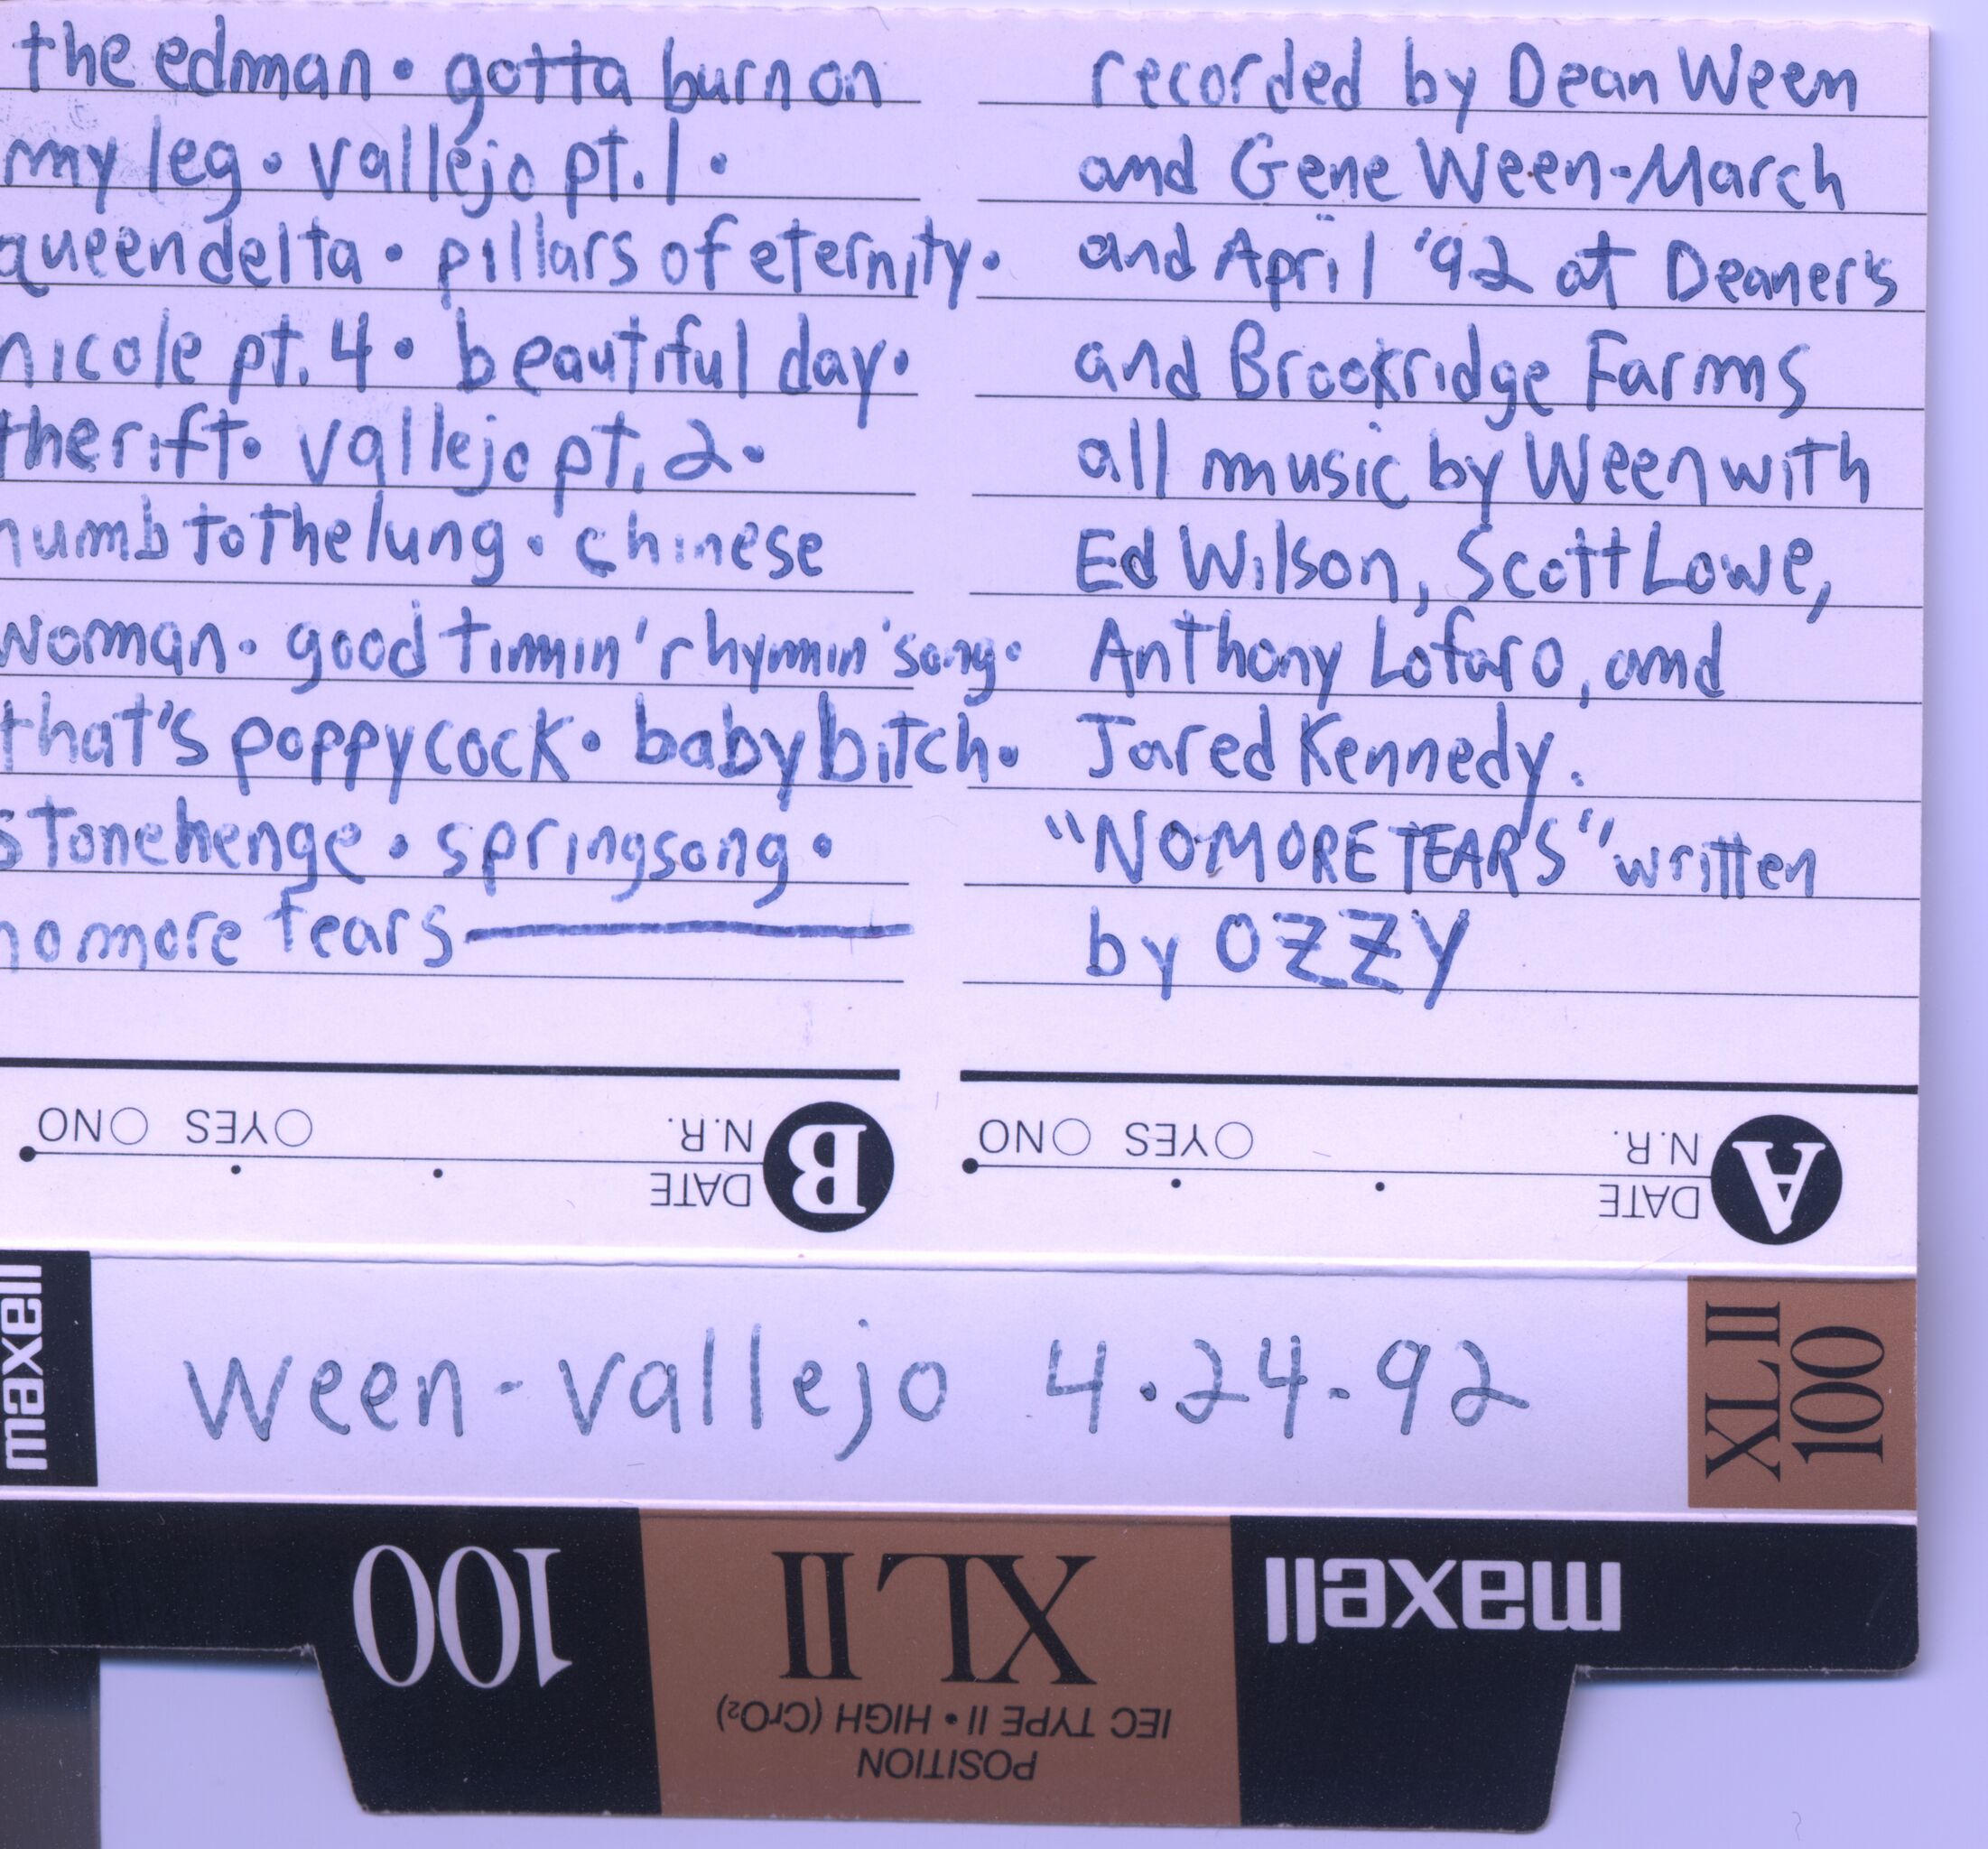 the edman • gotta burn on
my leg • vallejo pt. 1 •
queen delta • pillars of eternity •
nicole pt. 4 • beautiful day •
the rift • vallejo pt. 2 •
numb to the lung • chinese
woman • good timmin' rhymin' song •
that's poppycock • baby bitch •
stonehenge • springsong •
no more tears
recorded by Dean Ween
and Gene Ween-March
and April '92 at Deaner's
and Brookridge Farms
all music by Ween with
Ed Wilson, Scott Lowe,
Anthony Lofaro, and
Jared Kennedy.
"NO MORE TEARS" written
by OZZY
B
DATE
N.R. YES NO
A
DATE
N.R. YES NO
maxell
Ween-Vallejo 4.24-92
XLII
100
maxell
XLII
100
POSITION
IEC TYPE II • HIGH (CrO₂)